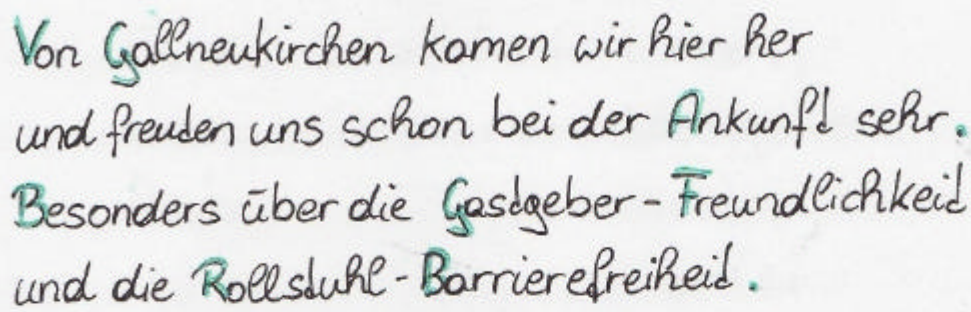 Von Gallneukirchen kamen wir hier her
und freuten uns schon bei der Ankunft sehr.
Besonders über die Gastgeber-Freundlichkeit
und die Rollstuhl-Barrierefreiheit.